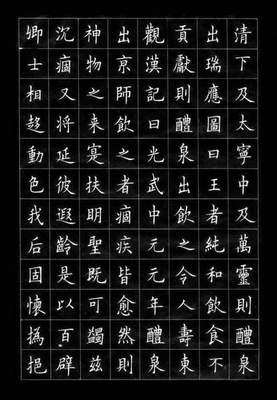 清下及太寧中及萬靈則醴泉
出瑞應圖曰王者純和飲食不
貢獻則醴泉出飲之令人壽東
觀漢記曰光武中元元年醴泉
出京師飲之者痼疾皆愈然則
神物之来寔扶明聖既可蠲茲
沉痼又将延彼遐齡是以百辟
卿士相趍動色我后固懷撝挹